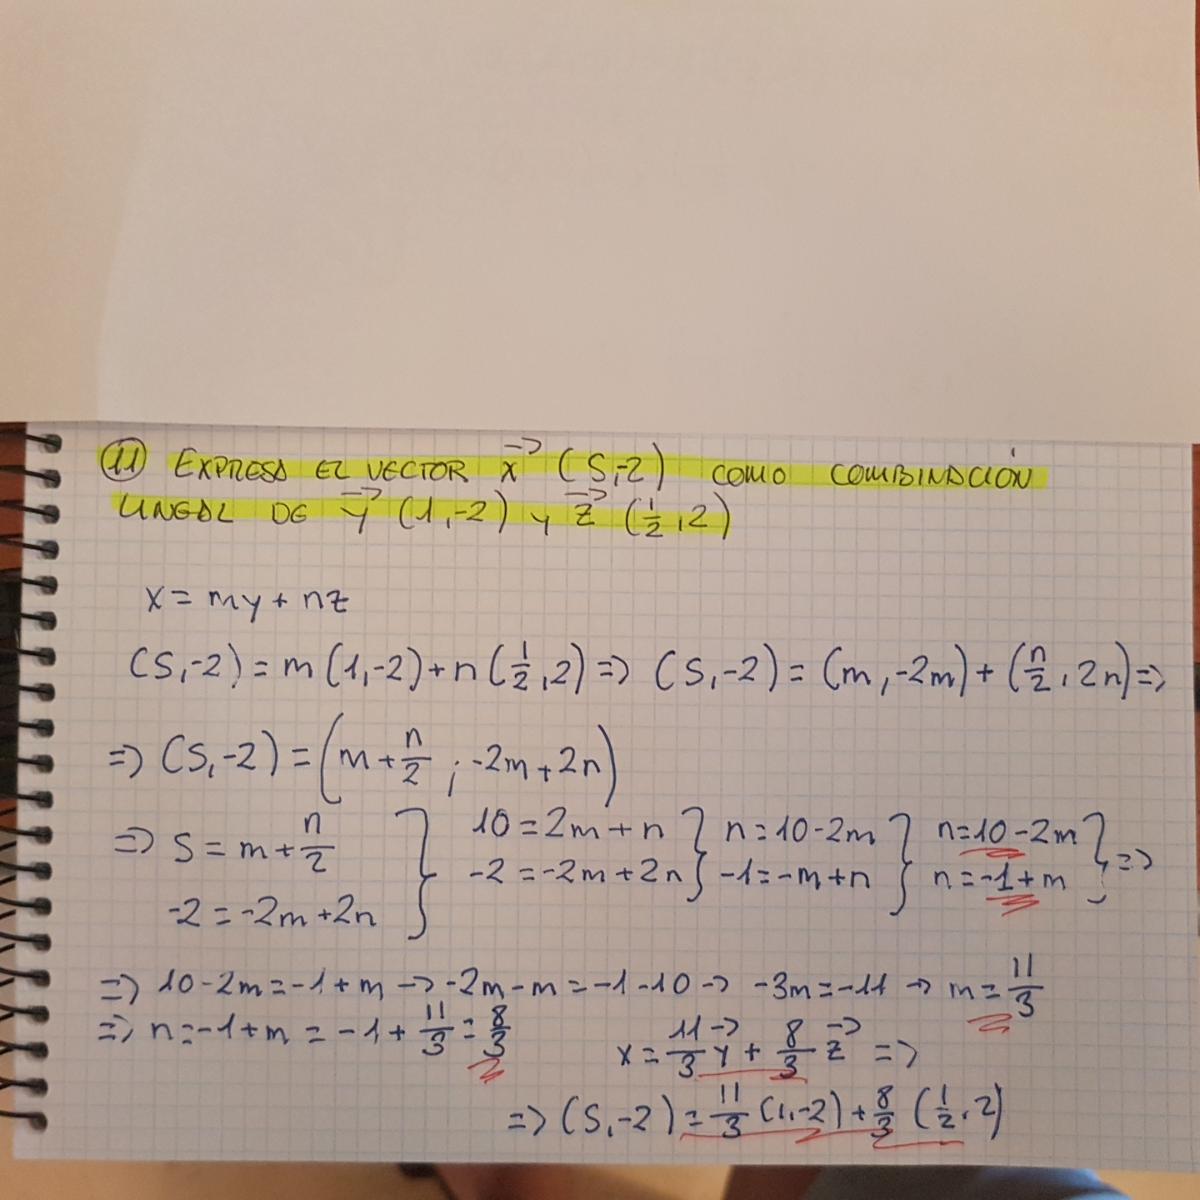 11 EXPRESA EL VECTOR x⃗ (5,-2) COMO COMBINACIÓN
LINEAL DE y⃗ (1,-2) y z⃗ (1/2,2)
x = my + nz
(5,-2) = m(1,-2) + n(1/2,2) => (5,-2) = (m,-2m) + (n/2, 2n) =>
=> (5,-2) = (m + n/2 ; -2m + 2n)
=> 5 = m + n/2 } 10 = 2m + n } n = 10 - 2m } n = 10 - 2m } =>
-2 = -2m + 2n } -2 = -2m + 2n } -1 = -m + n } n = -1 + m }
=> 10 - 2m = -1 + m -> -2m - m = -1 - 10 -> -3m = -11 -> m = 11/3
=> n = -1 + m = -1 + 11/3 = 8/3
x = 11/3 y⃗ + 8/3 z⃗ =>
=> (5,-2) = 11/3 (1,-2) + 8/3 (1/2,2)